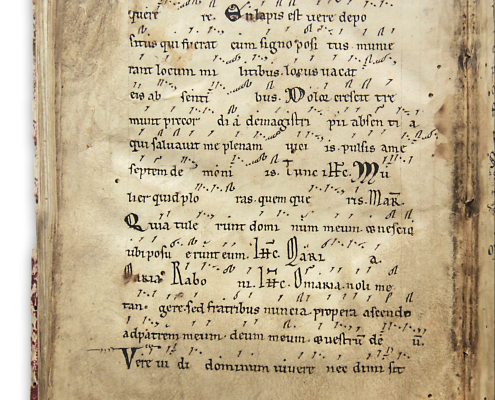 quere re. En lapis est uere depo
situs qui fuerat cum signo posi tus. mune
rant locum mi litibus. locus uacat
eis ab senti bus. Dolor crescit tre
munt precor dia de magistri pii absen ti a
qui saluauit me plenam uici is. pulsis a me
septem de moni is. Tunc ihc. Mu
lier quid plo ras. quem que ris. Mar.
Quia tule runt domi num meum. & nescio
ubi posu erunt eum. Ihc. Mari a.
Maria Rabo ni. Ihc. O maria. noli me
tan gere. sed fratribus nuncia. propera ascendo
ad patrem meum. deum meum. & uestrum de u.
Vere ui di dominum uiuere nec dimi sit